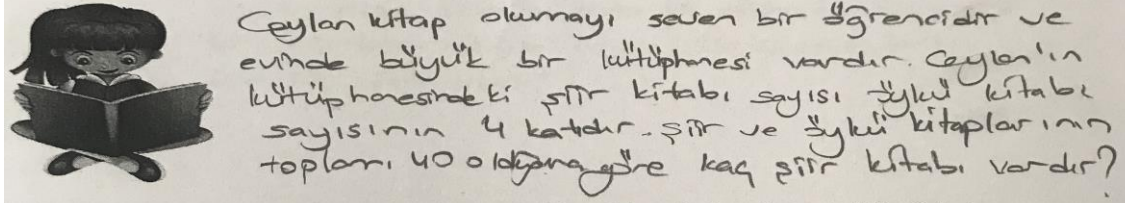 Ceylan kitap okumayı seven bir öğrencidir ve
evinde büyük bir kütüphanesi vardır. Ceylan'ın
kütüphanesindeki şiir kitabı sayısı öykü kitabı
sayısının 4 katıdır. Şiir ve öykü kitaplarının
toplamı 40 olduğuna göre kaç şiir kitabı vardır?